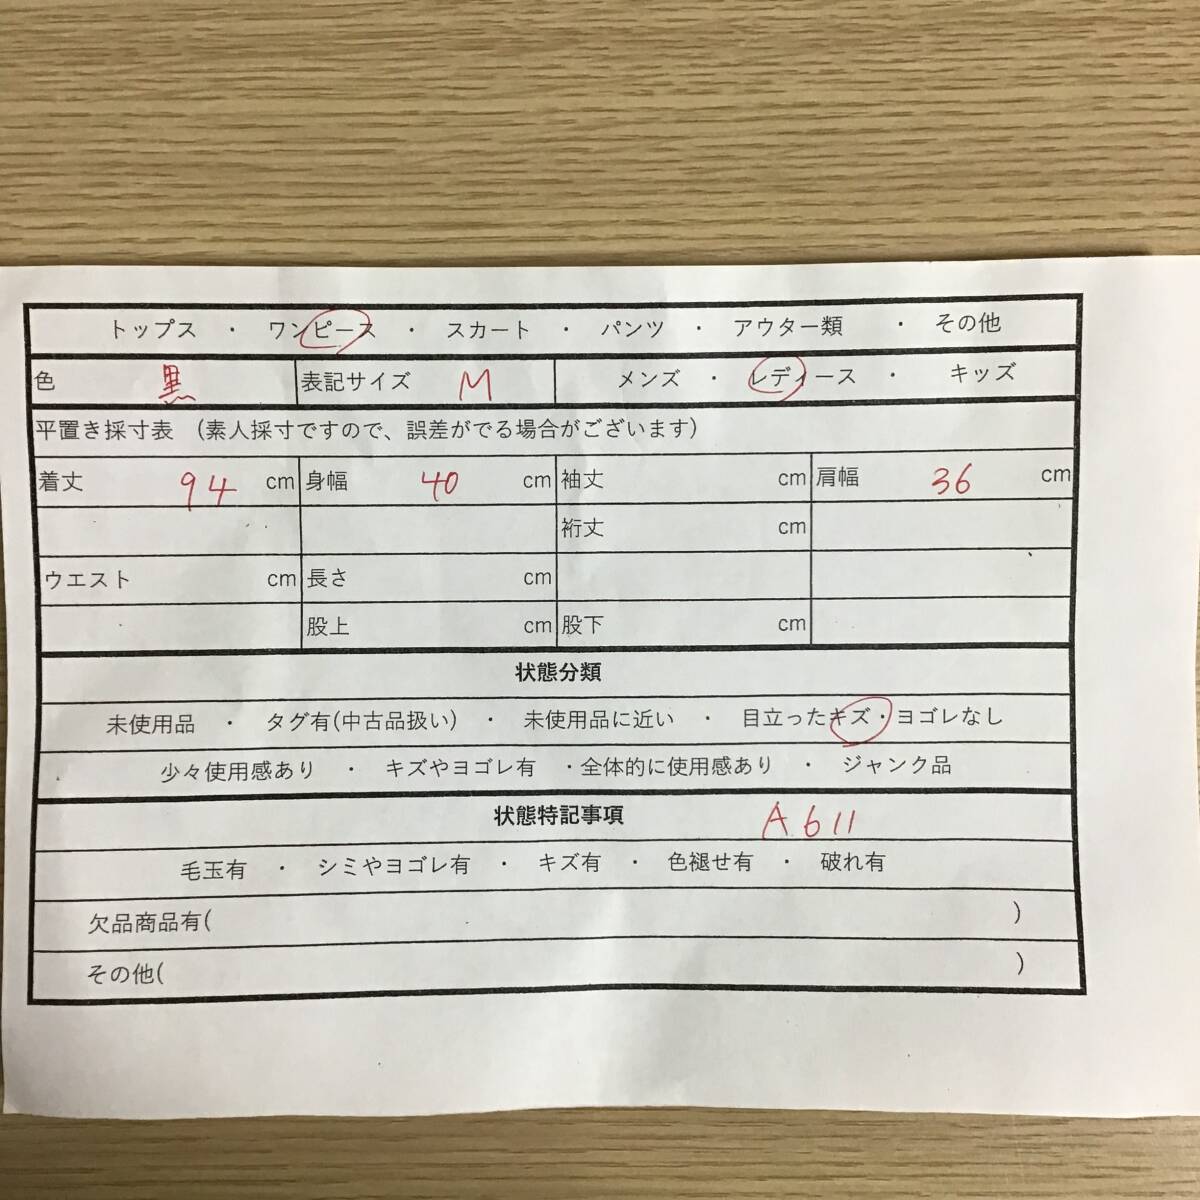 トップス ・ ワンピース ・ スカート ・ パンツ ・ アウター類 ・ その他
色 黒 表記サイズ M メンズ ・ レディース ・ キッズ
平置き採寸表 (素人採寸ですので、誤差がでる場合がございます)
着丈 94 cm 身幅 40 cm 袖丈 cm 肩幅 36 cm
裄丈 cm
ウエスト cm 長さ cm
股上 cm 股下 cm
状態分類
未使用品 ・ タグ有(中古品扱い) ・ 未使用品に近い ・ 目立ったキズ・ヨゴレなし
少々使用感あり ・ キズやヨゴレ有 ・全体的に使用感あり ・ ジャンク品
状態特記事項 A611
毛玉有 ・ シミやヨゴレ有 ・ キズ有 ・ 色褪せ有 ・ 破れ有
欠品商品有( )
その他( )